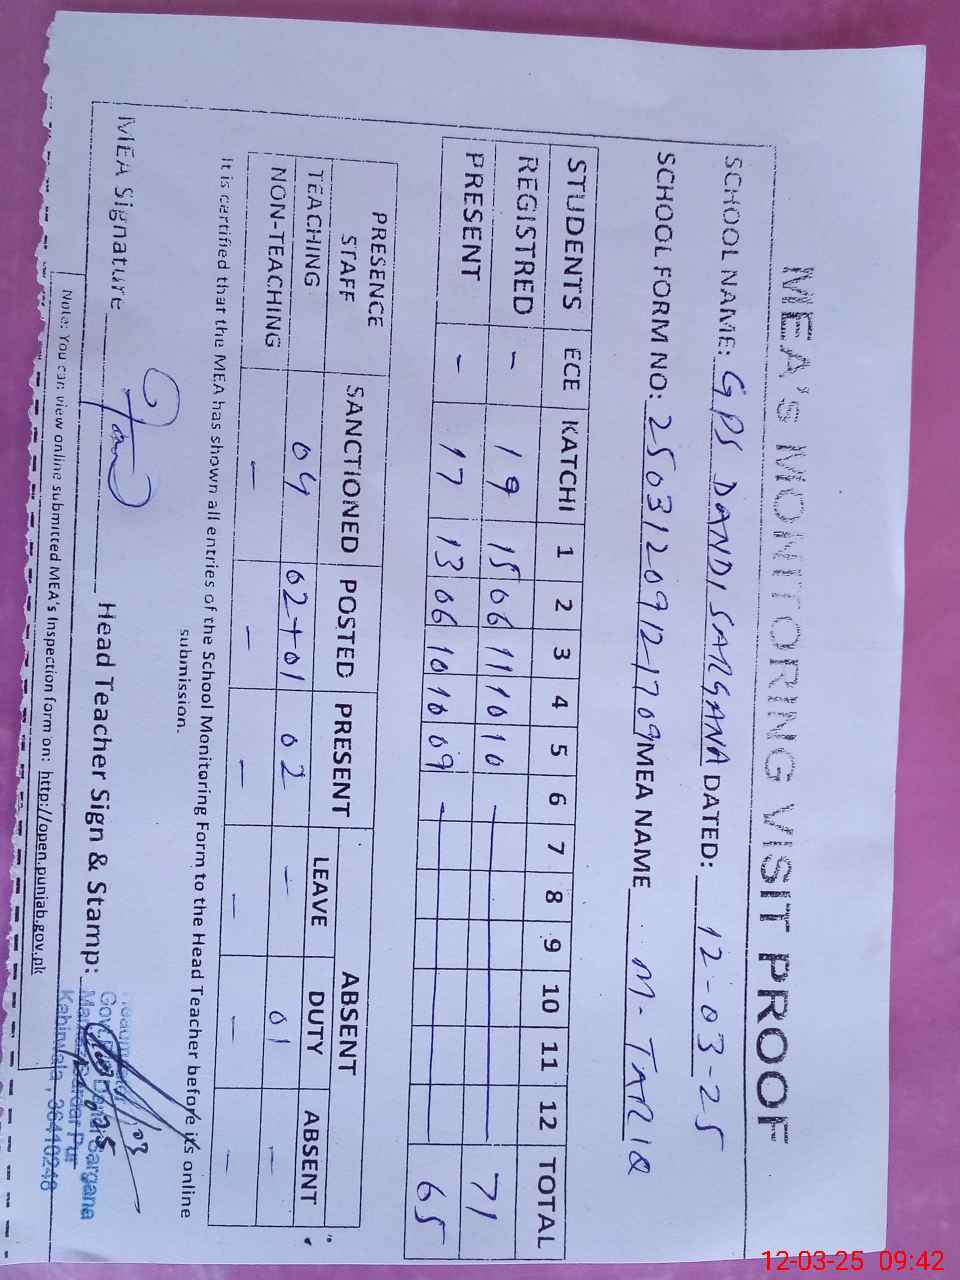 MEA's MONITORING VISIT PROOF
SCHOOL NAME: GPS DANDI SARGANA DATED: 12-03-25
SCHOOL FORM NO: 25031209121709 MEA NAME M. TARIQ
STUDENTS ECE KATCHI 1 2 3 4 5 6 7 8 9 10 11 12 TOTAL
REGISTRED - 19 15 06 11 10 10 - 71
PRESENT - 17 13 06 10 10 09 - 65
PRESENCE STAFF SANCTIONED POSTED PRESENT ABSENT
LEAVE DUTY ABSENT
TEACHING 04 02+01 02 - 01 -
NON-TEACHING - - - - - -
It is certified that the MEA has shown all entries of the School Monitoring Form to the Head Teacher before it's online
submission.
MEA Signature Head Teacher Sign & Stamp:
Sargana
Kabirwala, 36410248
Note: You can view online submitted MEA's Inspection form on: http://open.punjab.gov.pk
12-03-25 09:42